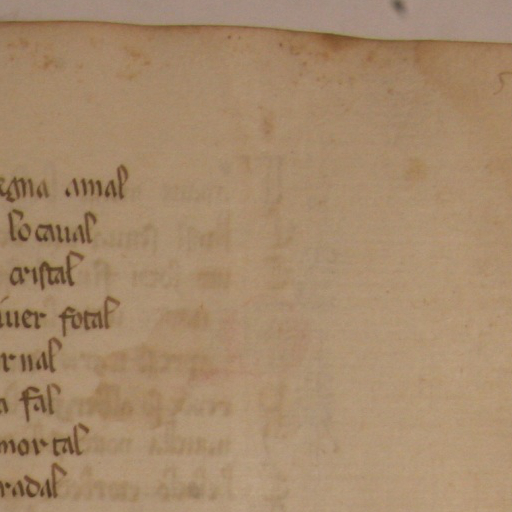 egna amal
lo caual
cristal
iuer fotal
rnal
a fal
mortal
radal